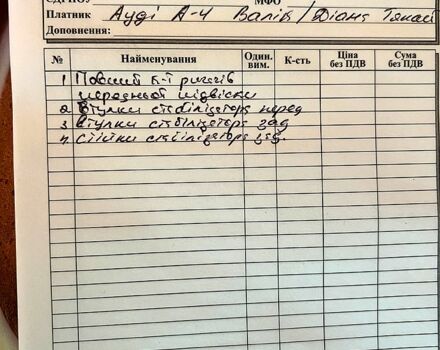 ЄДРПОУ МФО
Платник Ауді А-4 Валік / Діана
Доповнення:
№ Найменування Один. вим. К-сть Ціна без ПДВ Сума без ПДВ
1 Повний к-т ричагів
передньої підвіски
2 Втулки стабілізатора перед
3 Втулки стабілізатора зад
4 Стійки стабілізатора зад.